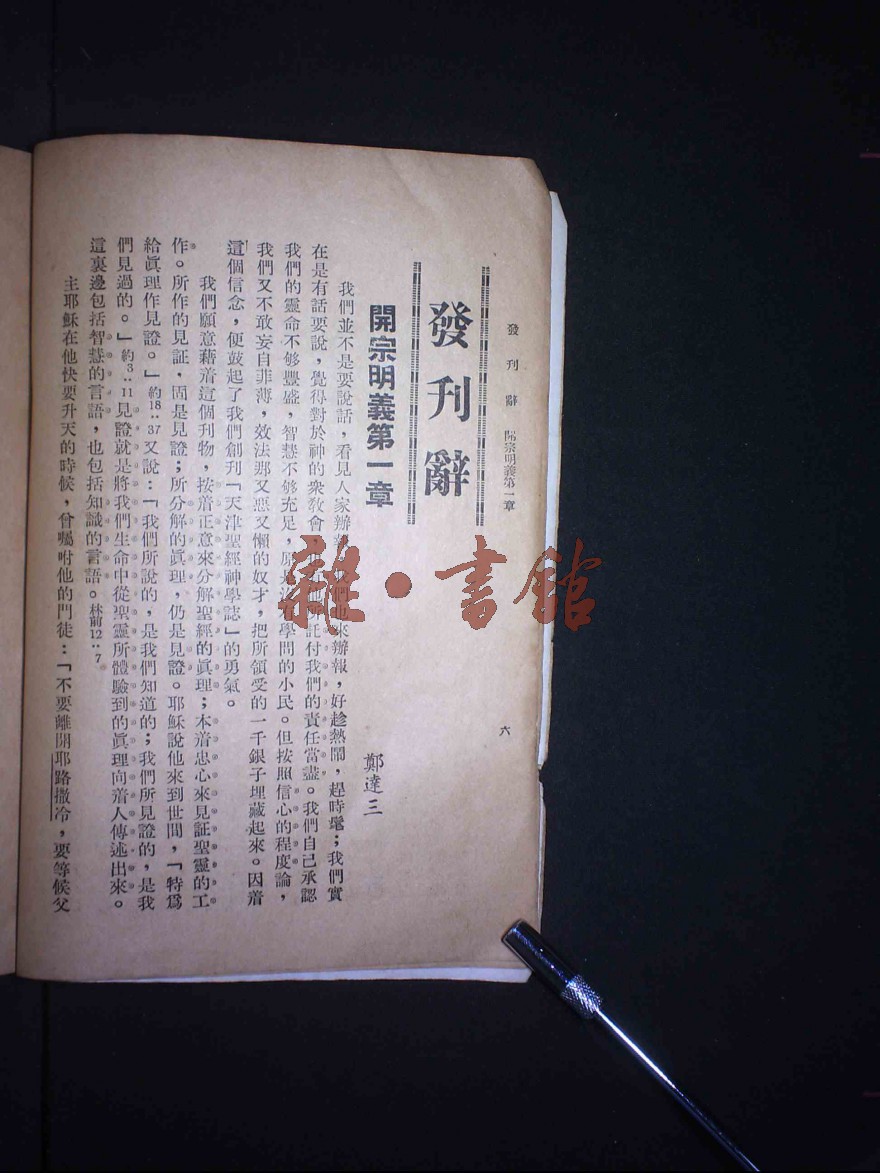 發刊辭 開宗明義第一章
六
發刊辭
開宗明義第一章
鄭達三
我們並不是要說話，看見人家辦報我們也來辦報，好趁熱鬧，趕時髦；我們實
在是有話要說，覺得對於神的衆敎會，所託付我們的責任當盡。我們自己承認
我們的靈命不够豐盛，智慧不够充足，原是沒有學問的小民。但按照信心的程度論，
我們又不敢妄自菲薄，效法那又惡又懶的奴才，把所領受的一千銀子埋藏起來。因着
這個信念，便鼓起了我們創刊「天津聖經神學誌」的勇氣。
我們願意藉着這個刊物，按着正意來分解聖經的眞理；本着忠心來見証聖靈的工
作。所作的見証，固是見證；所分解的眞理，仍是見證。耶穌說他來到世間，「特爲
給眞理作見證。」約18：37又說：「我們所說的，是我們知道的；我們所見證的，是我
們見過的。」約3：11見證就是將我們生命中從聖靈所體驗到的眞理向着人傳述出來。
這裏邊包括智慧的言語，也包括知識的言語。林前12：7
主耶穌在他快要升天的時候，曾囑咐他的門徒：「不要離開耶路撒冷，要等候父
雜·書館